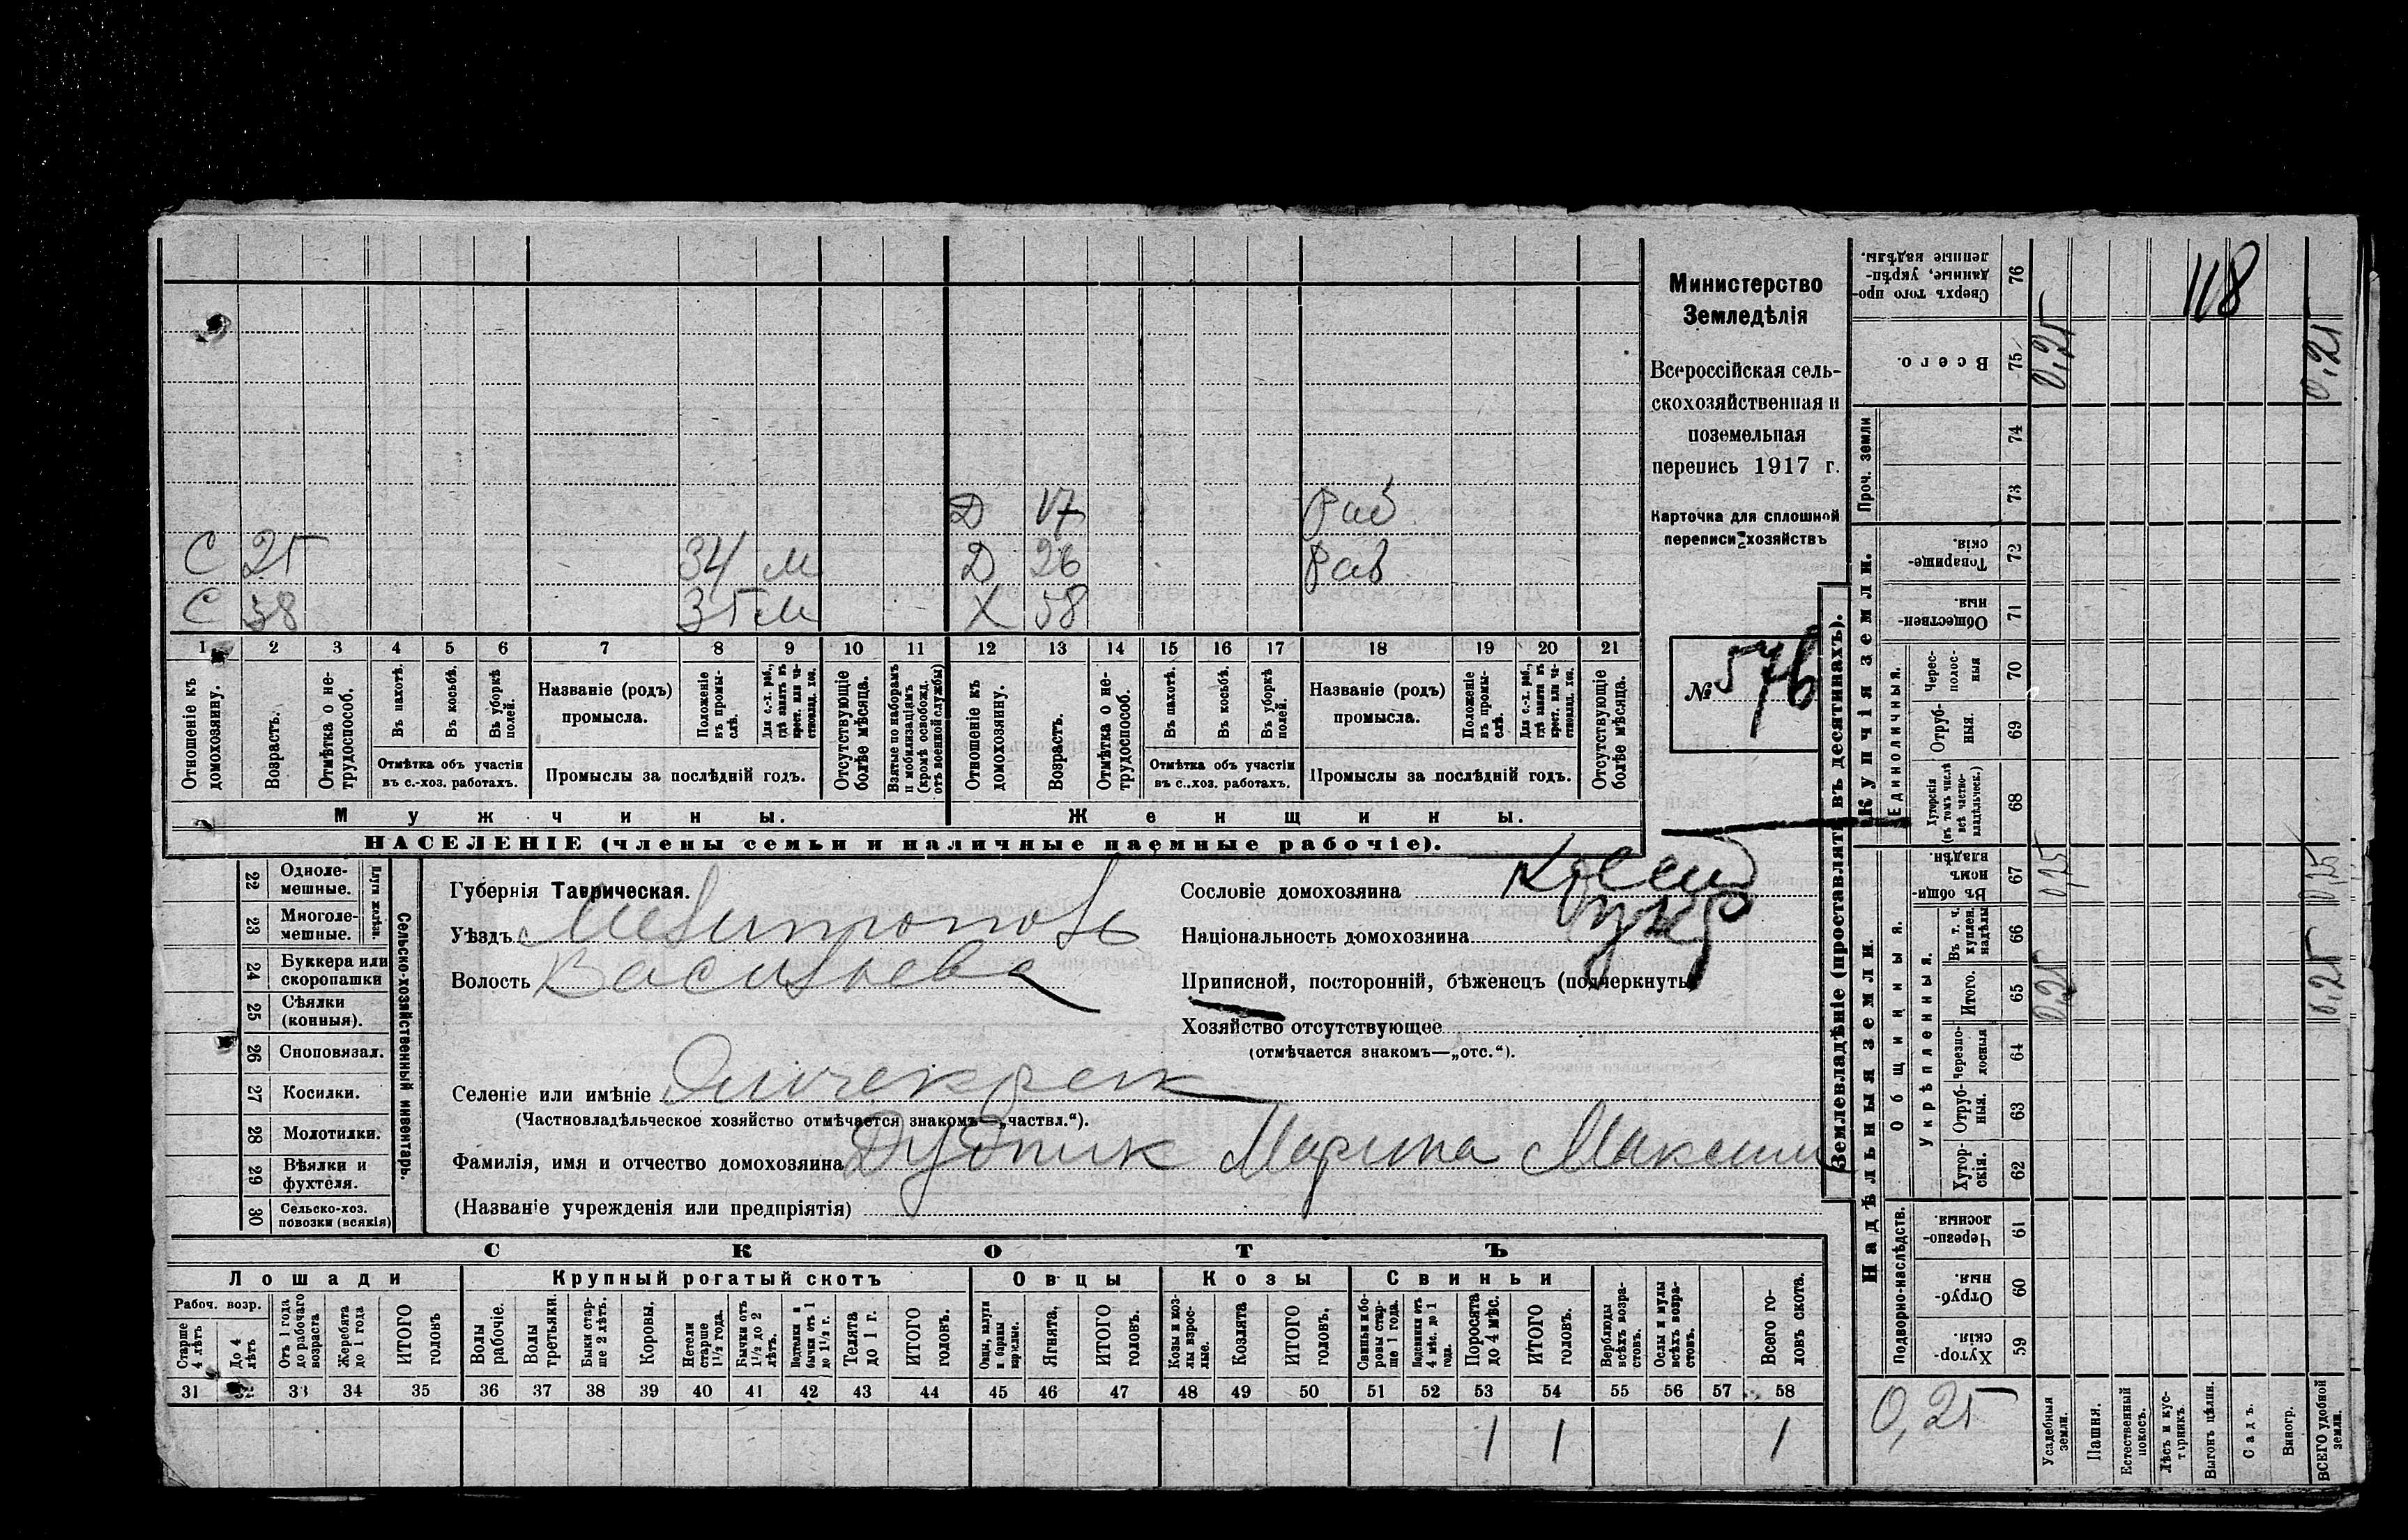 Министерство
Земледѣлія
Всероссійская сель-
скохозяйственная и
поземельная
перепись 1917 г.
Карточка для сплошной
переписи хозяйствъ
№ 576
118
Д 17 Раб
С 25 34 м Д 26 Раб
С 38 35 м Х 58
1 2 3 4 5 6 7 8 9 10 11 12 13 14 15 16 17 18 19 20 21
Отношеніе къ домохозяину.
Возрастъ.
Отмѣтка о не-трудоспособ.
Въ пахотѣ.
Въ косьбѣ.
Въ уборкѣ полей.
Отмѣтка объ участіи
въ с.-хоз. работахъ.
Названіе (родъ)
промысла.
Положеніе въ промы-слѣ.
Для с.-х. раб., гдѣ занятъ въ крест. или ча-стновлад. хоз.
Промыслы за послѣдній годъ.
Отсутствующіе болѣе мѣсяца.
Взятые по наборамъ и мобилизаціямъ (кромѣ освобожд. отъ военной службы)
Отношеніе къ домохозяину.
Возрастъ.
Отмѣтка о не-трудоспособ.
Въ пахотѣ.
Въ косьбѣ.
Въ уборкѣ полей.
Отмѣтка объ участіи
въ с..хоз. работахъ.
Названіе (родъ)
промысла.
Положеніе въ промы-слѣ.
Для с.-х. раб., гдѣ занята въ крест. или ча-стновлад. хоз.
Промыслы за послѣдній годъ.
Отсутствующіе болѣе мѣсяца.
Мужчины. Женщины.
НАСЕЛЕНІЕ (члены семьи и наличные наемные рабочіе).
Сельско-хозяйственный инвентарь.
Плуги желѣзн.
22 Одноле-мешные.
23 Многоле-мешные.
24 Буккера или скоропашки
25 Сѣялки (конныя).
26 Сноповязал.
27 Косилки.
28 Молотилки.
29 Вѣялки и фухтеля.
30 Сельско-хоз. повозки (всякія)
Губернія Таврическая.
Уѣздъ Мелитополь
Волость Васильева
Селеніе или имѣніе
(Частновладѣльческое хозяйство отмѣчается знакомъ—„частвл.“).
Фамилія, имя и отчество домохозяина Дудник Марина Максим
(Названіе учрежденія или предпріятія)
Сословіе домохозяина
Національность домохозяина укр
Приписной, посторонній, бѣженецъ (подчеркнуть)
Хозяйство отсутствующее
(отмѣчается знакомъ—„отс.“).
СКОТЪ
Лошади Крупный рогатый скотъ Овцы Козы Свиньи
Рабоч. возр.
Старше 4 лѣтъ
До 4 лѣтъ
Отъ 1 года до рабочаго возраста
Жеребята до 1 года
ИТОГО головъ
Волы рабочіе.
Волы третьяки.
Быки стар-ше 2 лѣтъ.
Коровы.
Нетели старше 1½ года.
Бычки отъ 1½ до 2 лѣтъ.
Подтелки и бычки отъ 1 до 1½ г.
Телята до 1 г.
ИТОГО головъ.
Овцы, валухи и бараны взрослые.
Ягнята.
ИТОГО головъ.
Козы и коз-лы взрос-лые.
Козлята
ИТОГО головъ.
Свиньи и бо-ровы стар-ше 1 года.
Подсвинки отъ 4 мѣс. до 1 года.
Поросята до 4 мѣс.
ИТОГО головъ.
Верблюды всѣхъ возра-стовъ.
Ослы и мулы всѣхъ возра-стовъ.
Всего го-ловъ скота.
31 32 33 34 35 36 37 38 39 40 41 42 43 44 45 46 47 48 49 50 51 52 53 54 55 56 57 58
1 1 1
Землевладѣніе (проставлять въ десятинахъ).
Купчія земли.
Надѣльныя земли.
Проч. земли
Сверхъ того про-данные, укрѣп-ленные надѣлы. 76
Всего. 75 0,25 0,25
74
73
Товарище-скія. 72
Обществен-ныя 71
Единоличныя.
Черес-полос-ная 70
Отруб-ныя. 69
Хуторскія (въ томъ числѣ всѣ частно-владѣльческ.) 68
Общинныя.
Въ общи-номъ владѣн. 67 0,25 0,25
Укрѣпленныя.
Въ т. ч. куплен. надѣлы 66
Итого. 65 0,25 0,25
Черезпо-лосныя 64
Отруб-ныя. 63
Хутор-скія. 62
Подворно-наслѣдств.
Черезпо-лосныя. 61
Отруб-ныя. 60
Хутор-скія 59
0,25
Усадебныя земли.
Пашня.
Естественный покосъ.
Лѣсъ и кус-тарникъ.
Выгонъ цѣлин.
Садъ.
Виногр.
ВСЕГО удобной земли.